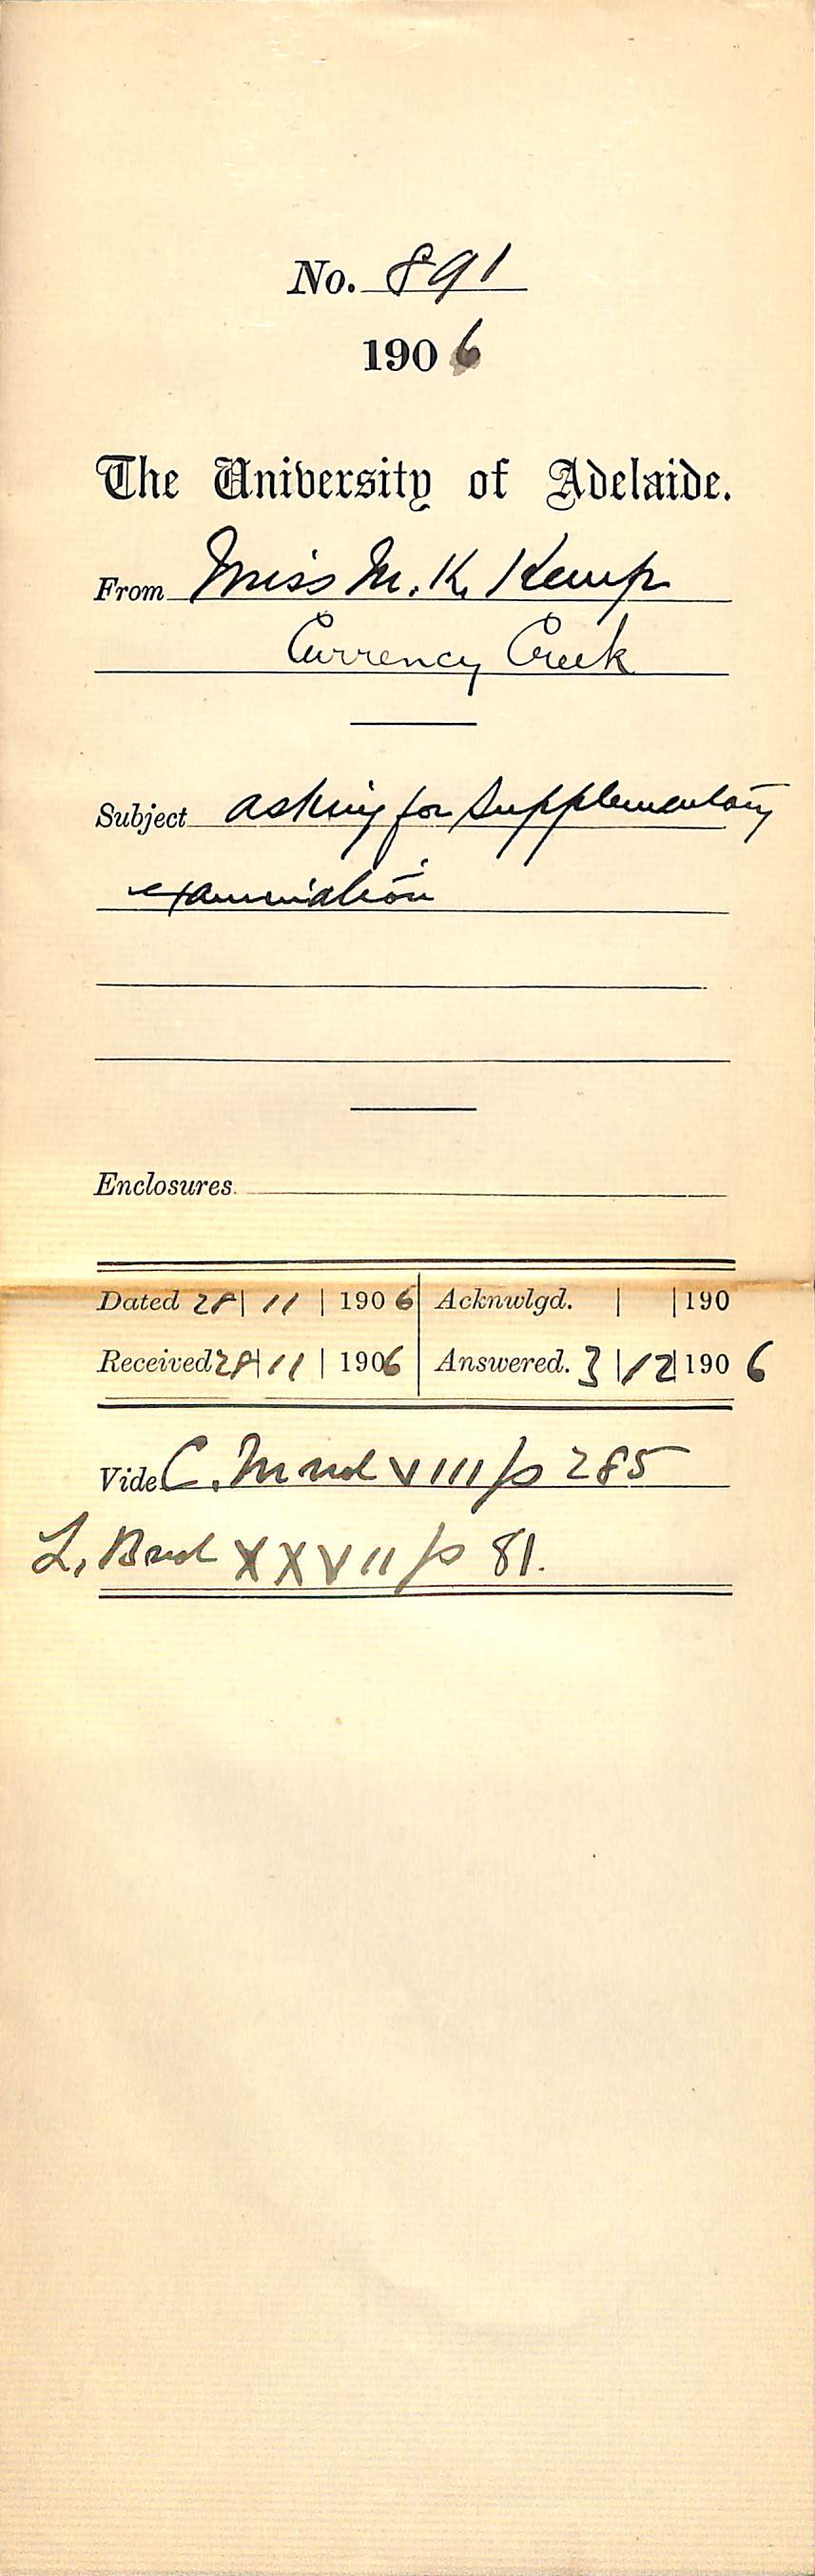 No. 891
1906
The University of Adelaide.
From Miss M. K. Kemp
Currency Creek
Subject asking for Supplementary
examination
Enclosures.
Dated 28 | 11 | 1906 Acknwlgd. | | 190
Received 28 | 11 | 1906 Answered. 3 | 12 | 1906
Vide C. M vol VIII/p 285
L. B vol XXVII/p 81.